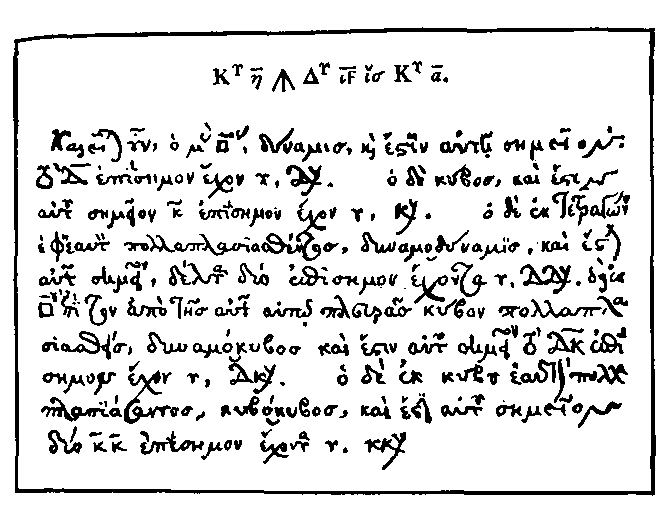 Κ^Υ η̄ ⩚ Δ^Υ ιϛ̄ ἴσ Κ^Υ ᾱ.
Καλεῖται οὖν, ὁ μὲν □ος, δύναμις, καὶ ἔστιν αὐτῆς σημεῖον
τὸ Δ̄ ἐπίσημον ἔχον υ, Δυ. ὁ δὲ κύβος, καὶ ἔστιν
αὐτοῦ σημεῖον κ̄ ἐπίσημον ἔχον υ, κυ. ὁ δὲ ἐκ τετραγώνου
ἐφ' ἑαυτὸν πολλαπλασιασθέντος, δυναμοδύναμις, καὶ ἔστιν
αὐτοῦ σημεῖον, δέλτα δύο ἐπίσημον ἔχοντα υ, ΔΔυ.
τὸν ἀπὸ τῆς αὐτοῦ πλευρᾶς κύβον πολλαπλα
σιασθείς, δυναμόκυβος καὶ ἔστιν αὐτοῦ σημεῖον τὸ ΔΚ̄ ἐπί
σημον ἔχον υ, Δκυ. ὁ δὲ ἐκ κύβου ἑαυτὸν πολλα
πλασιάσαντος, κυβόκυβος, καὶ ἔστιν αὐτοῦ σημεῖον
δύο κ̄κ̄ ἐπίσημον ἔχοντα υ. κκυ